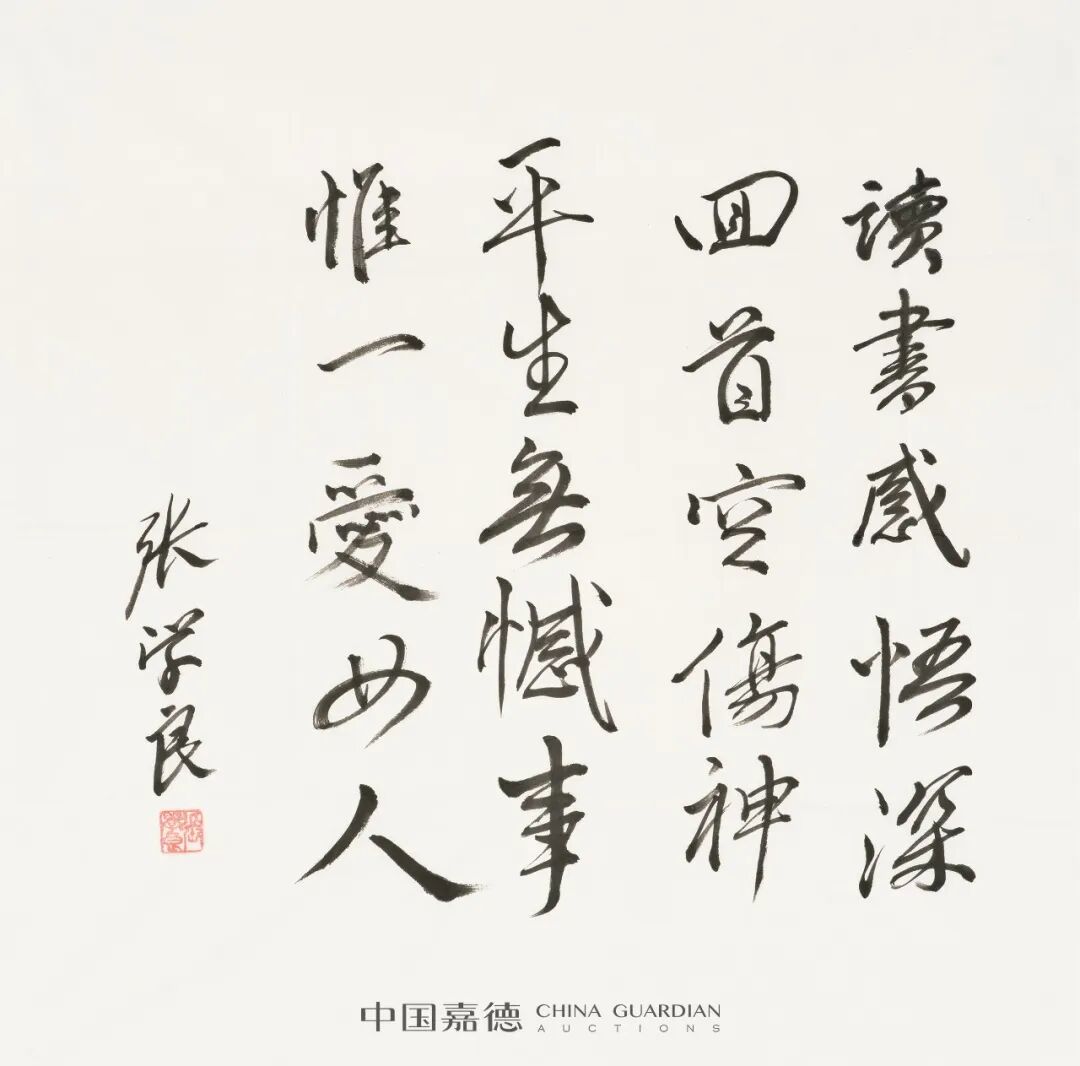 讀書感悟深
回首空傷神
平生無憾事
惟一愛女人
张学良
中国嘉德 CHINA GUARDIAN
AUCTIONS